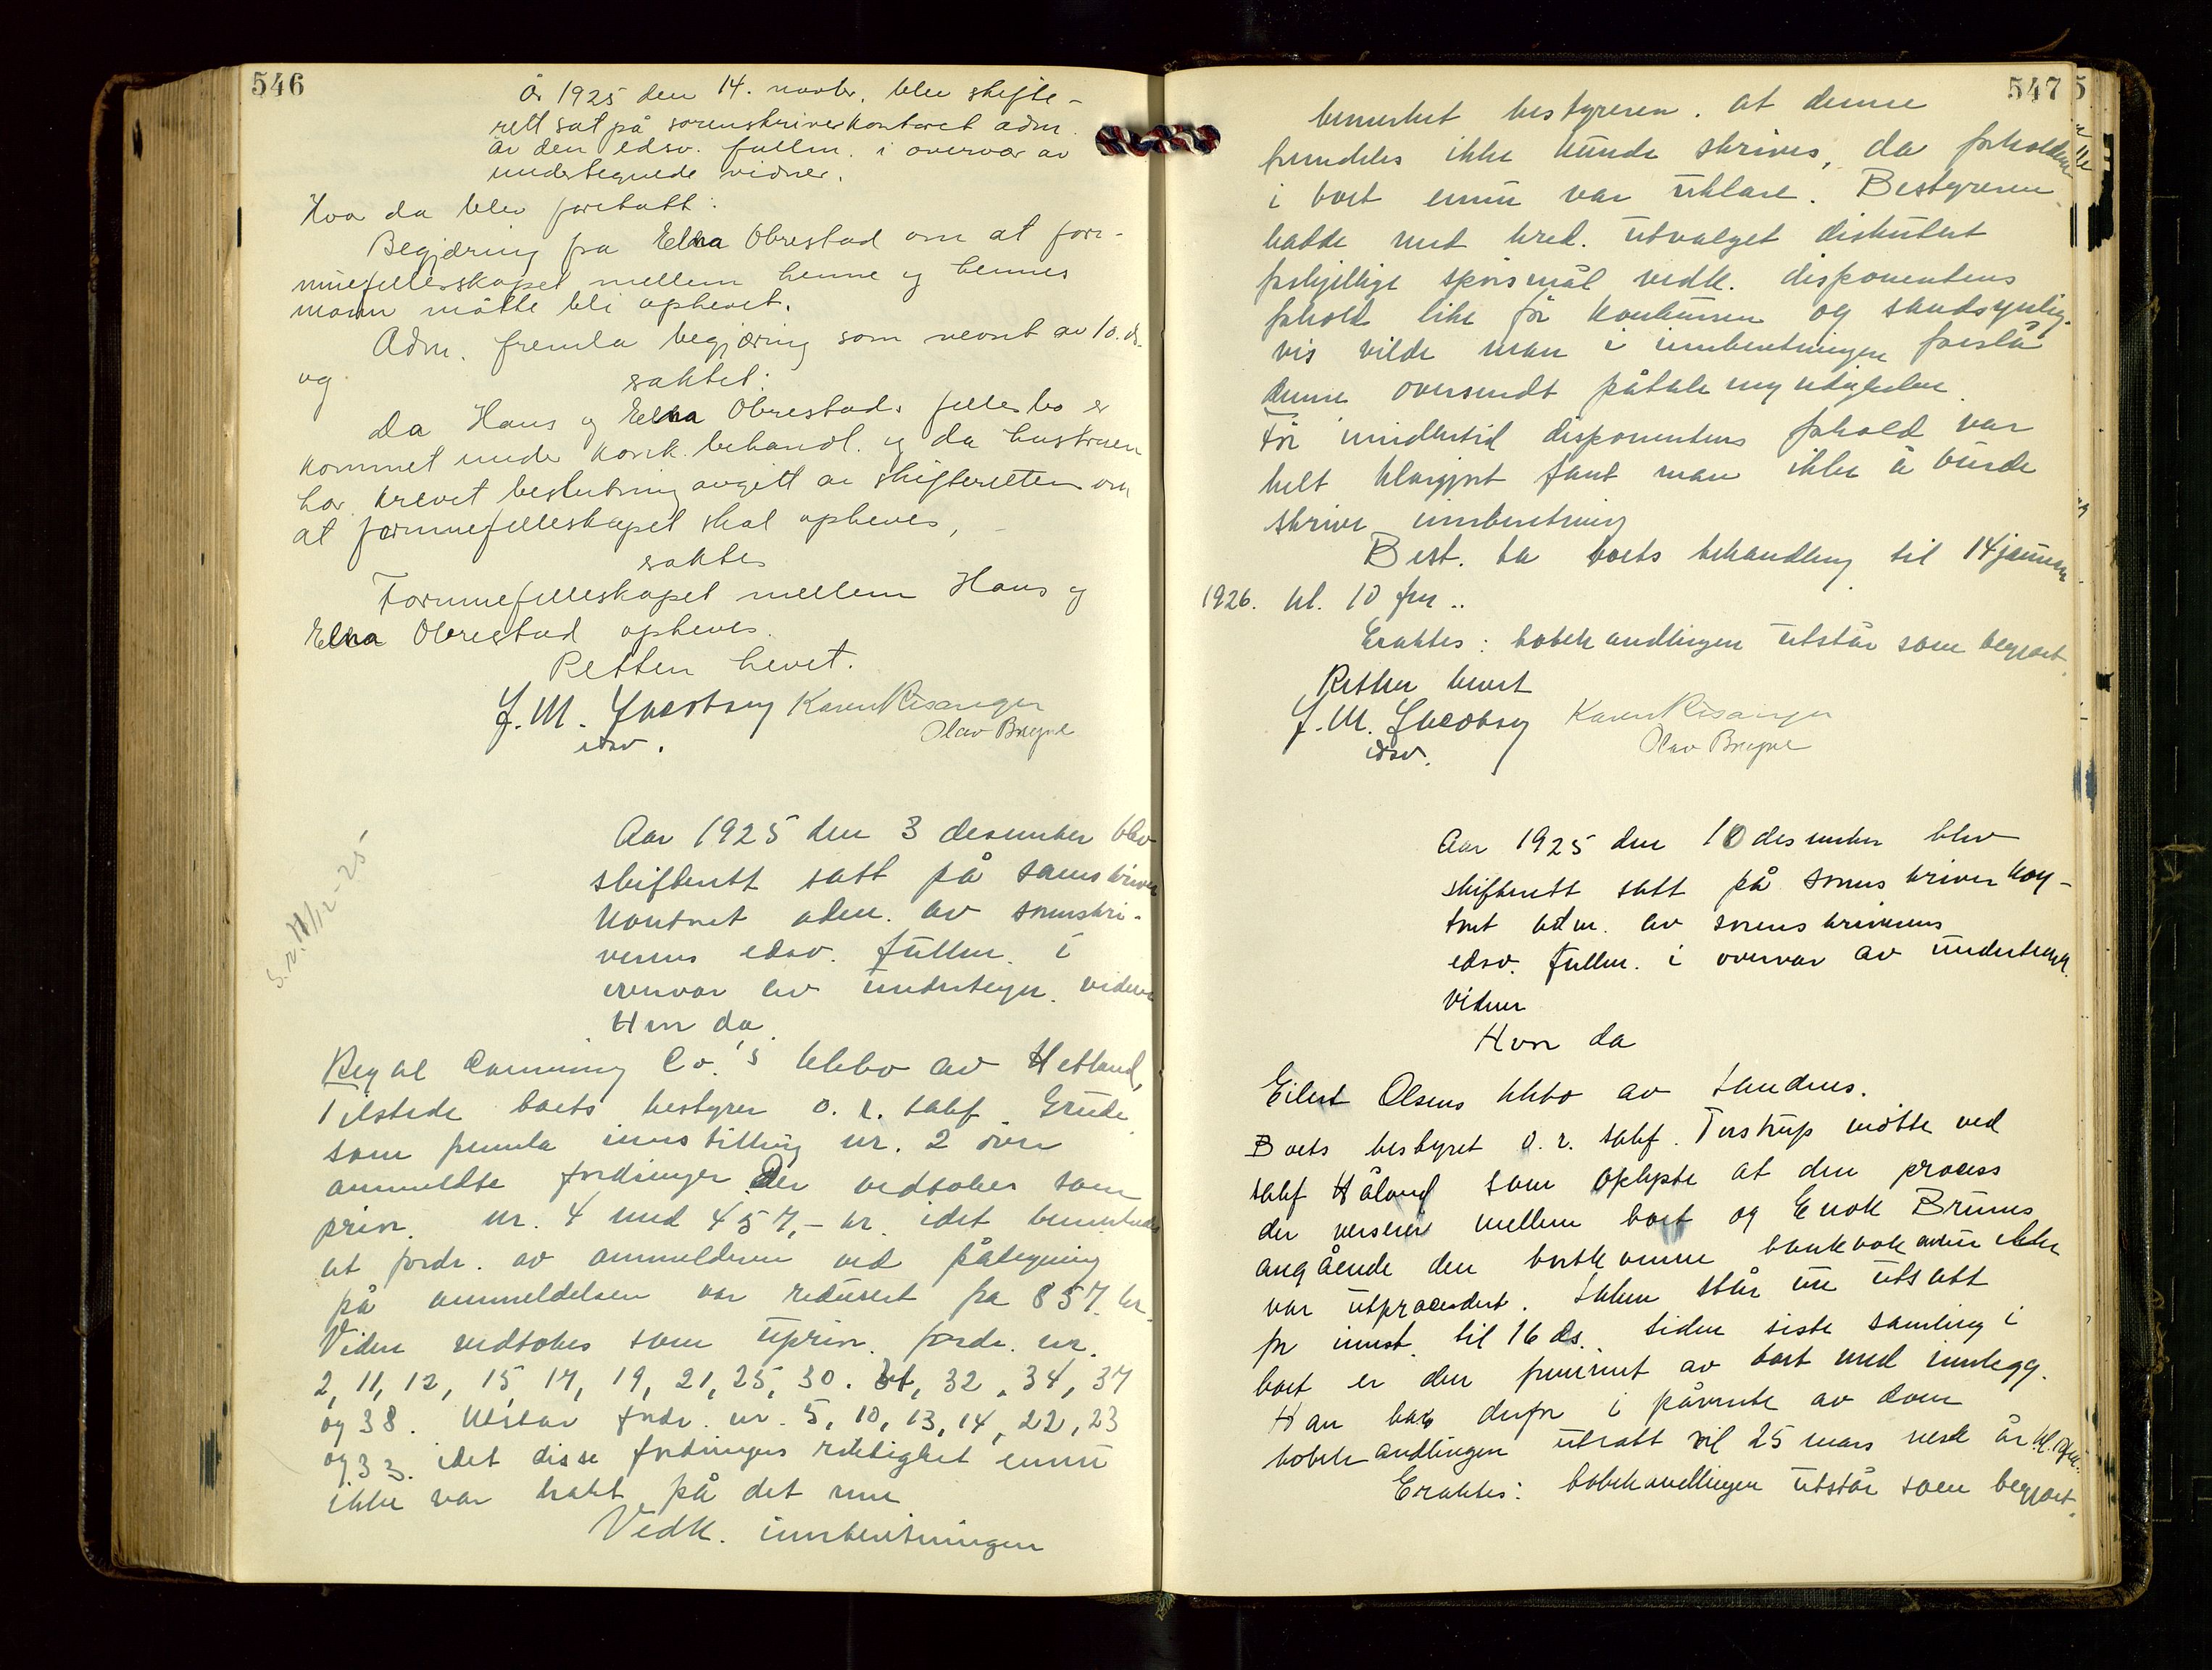 546
År 1925 den 14. novbr. blev skifte-
rett sat på sorenskriverkontoret adm.
av den edsv. fullm. i overvær av
undertegnede vidner.
Hva da blev foretatt:
Begjæring fra Elna Obrestad om at for-
muefellesskapet mellem henne og hennes
mann måtte bli ophevet.
Adm. fremla begjæring som nevnt av 10. ds.
og
saktes:
Da Hans og Elna Obrestads fellesbo er
kommet under konk. behandl. og da hustruen
har krevet beslutning avgitt av skifteretten om
at formuefelleskapet skal opheves,
saktes
Formuefelleskapet mellem Hans og
Elna Obrestad opheves.
Retten hevet.
J. M. Jacobsen Karen Risanger
edsv. Olav Bryne
S.v. 11/12-25
Aar 1925 den 3 desember blev
skifterett satt på sorenskriver
kontoret adm. av sorenskri-
verens edsv. fullm. i
overvær av undertegn. vidner
Hvor da
Royal Canning Co.'s kkbo av Hetland,
Tilstede boets bestyrer o. r. sakf. Grude
som fremla innstilling nr. 2 over
anmeldte fordringer. Der vedtokes som
priv. nr. 4 med 457,- kr. idet bemerkedes
at fordr. av anmelderen ved påtegning
på anmeldelsen var redusert fra 857 kr.
Videre vedtokes som upriv. fordr. nr.
2, 11, 12, 15, 17, 19, 21, 25, 30. 31, 32, 34, 37
og 38. Utstår fordr. nr. 5, 10, 13, 14, 22, 23
og 33. idet disse fordringers riktighet ennu
ikke var bragt på det rene
Vedk. innberetningen
547
bemerket bestyreren. at denne
fremdeles ikke kunde skrives, da forholdene
i boet ennu var uklare. Bestyreren
hadde med kred. utvalget diskutert
forskjellige spørsmål vedk. disponentens
forhold like før konkursen og sandsynlig-
vis vilde man i innberetningen foreslå
denne oversendt påtalemyndigheten.
Før imidlertid disponentens forhold var
helt klargjort fant man ikke å burde
skrive innberetning
Best. ba boets behandling til 14 januar
1926. kl. 10 fm..
Eraktes: bobehandlingen utstår som begjært
Retten hevet
J. M. Jacobsen Karen Risanger
edsv. Olav Bryne
Aar 1925 den 10 desember blev
skifterett satt på sorenskriverkon-
toret adm. av sorenskriverens
edsv. fullm. i overvær av undertegn.
vidner
Hvor da
Eilert Olsens kkbo av Sandnes.
Boets bestyrer o. r. sakf. Torstrup møtte ved
sakf Håland som oplyste at den process
der verserer mellem boet og Enok Bruns
angående den bortkomne bankbok ennu ikke
var utprocedert. Saken står nu utsatt
for innst. til 16 ds. Siden siste samling i
boet er den fremmet av boet med innlegg.
Han bad derfor i påvente av dom
bobehandlingen utsatt til 25 mars nest år. kl. 10 fm.
Eraktes: bobehandlingen utstår som begjært.